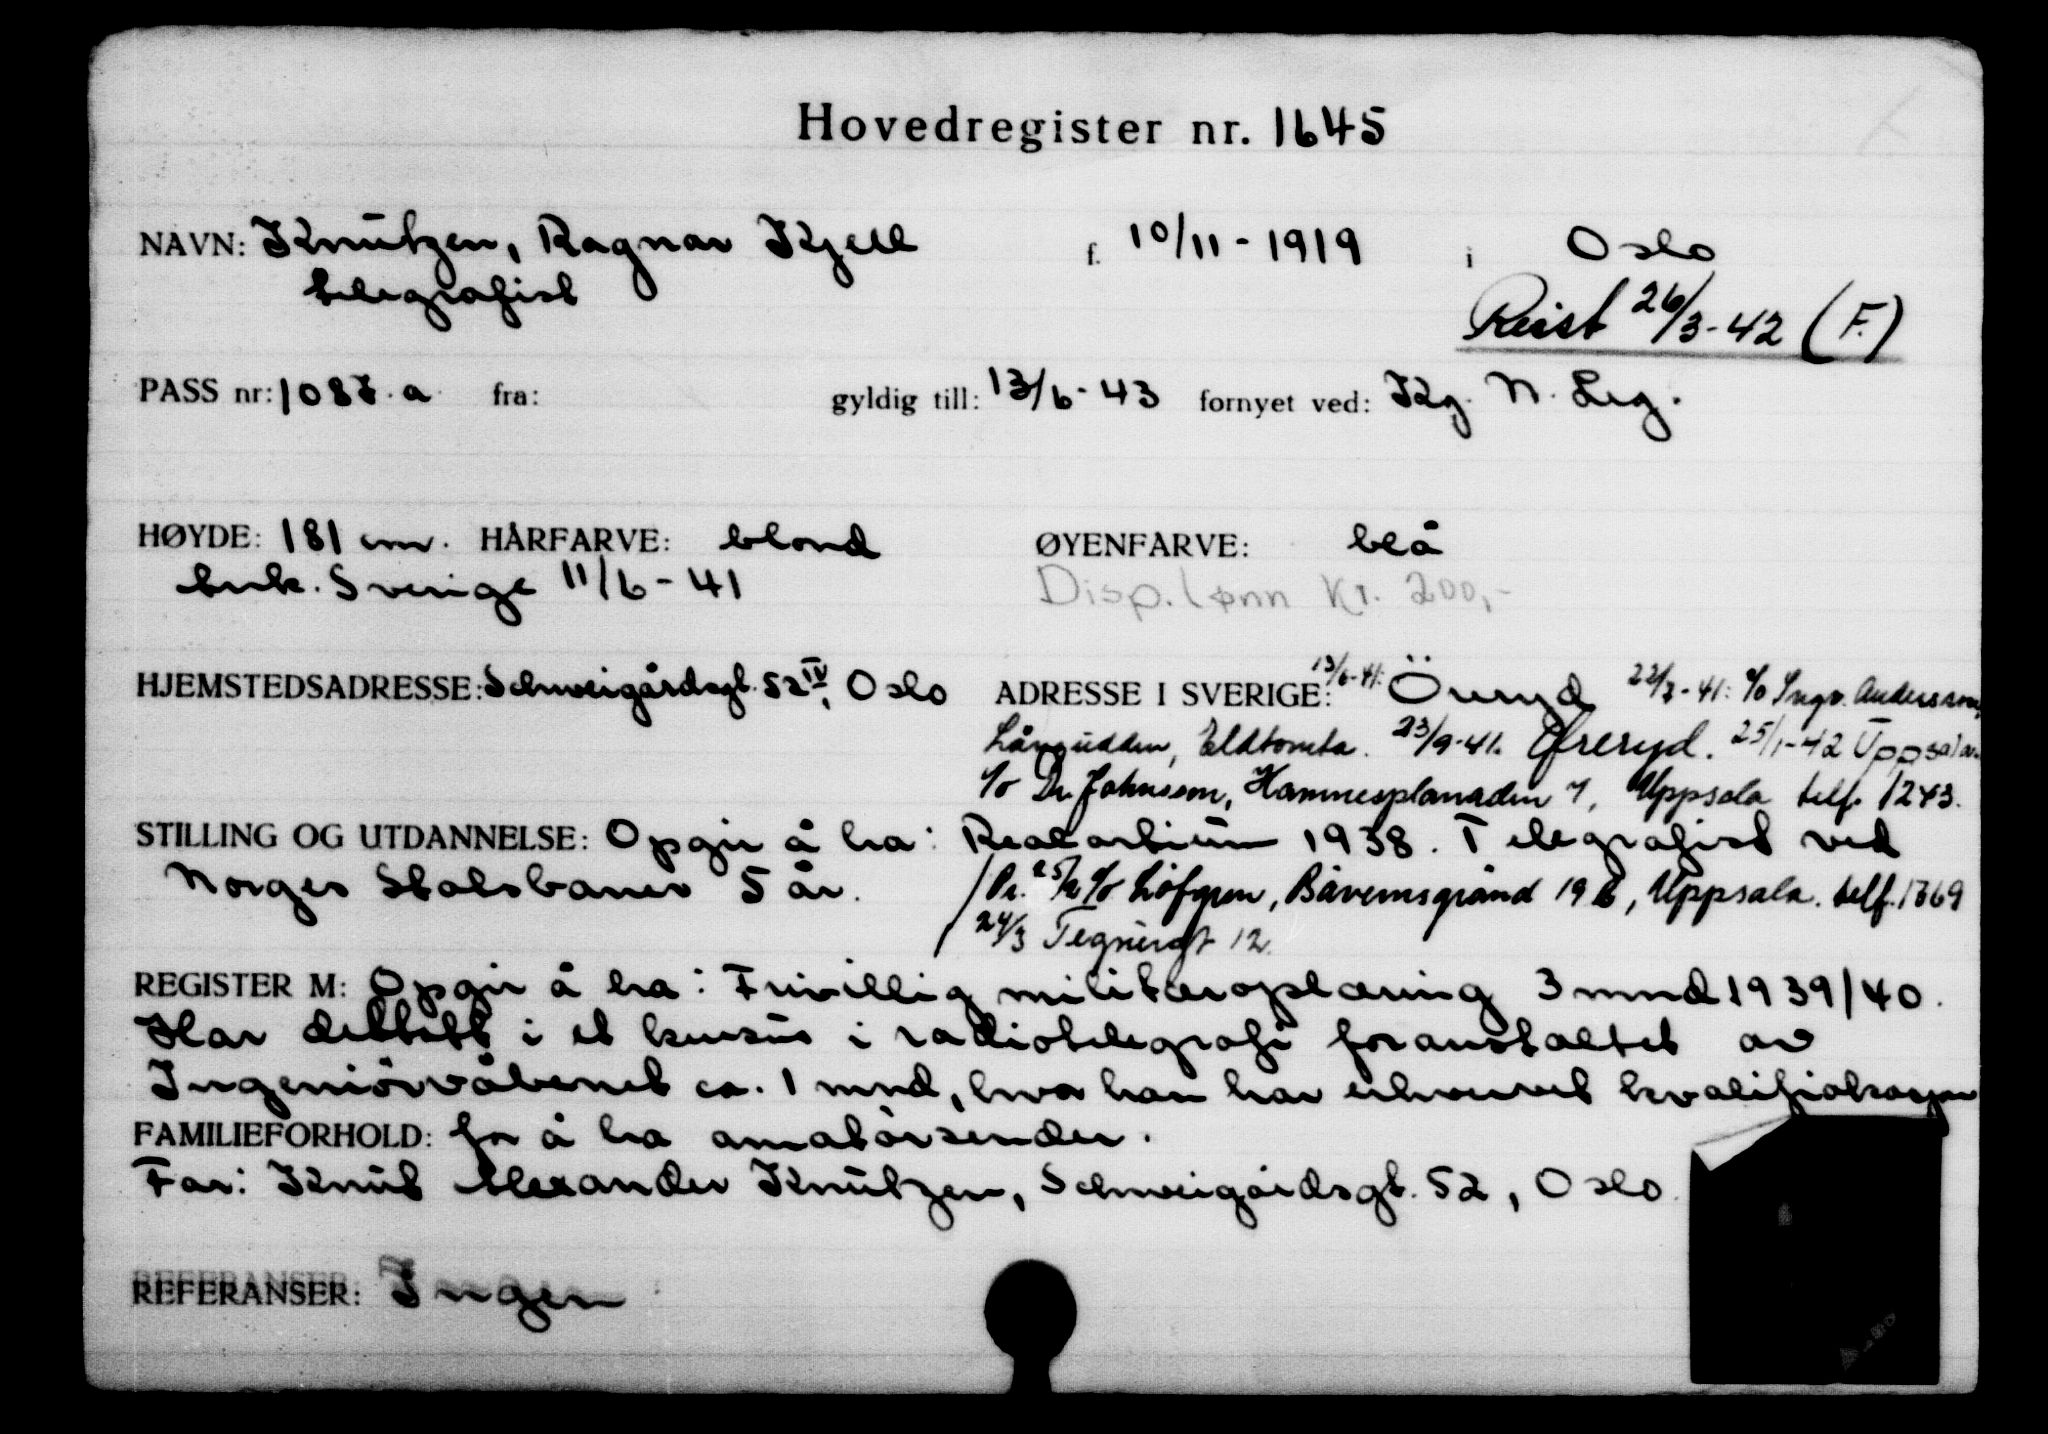 Hovedregister nr. 1645
NAVN: Knutzen, Ragnar Kjell f. 10/11-1919 i Oslo
telegrafist
Reist 26/3-42 (F.)
PASS nr: 1087.a fra: gyldig till: 13/6-43 fornyet ved: Kg. N. Leg.
HØYDE: 181 cm. HÅRFARVE: blond ØYENFARVE: blå
Ank. Sverige 11/6-41 Disp. lønn Kr. 200,-
HJEMSTEDSADRESSE: Schweigårdsgt. 52 IV, Oslo ADRESSE I SVERIGE: 13/6-41: Öreryd 22/7-41: c/o Ingv. Andersson,
Långudden, Eldtomta. 23/9-41. Öreryd. 25/1-42 Uppsala.
c/o Dr. Johnsson, Hamnesplanaden 7, Uppsala telf. 1243.
STILLING OG UTDANNELSE: Opgir å ha: Realartium 1938. Telegrafist ved
Norges Statsbaner 5 år.
Pr. 25/2 c/o Löfgren, Bävernsgränd 19 B, Uppsala. telf. 1369
24/3 Tegnérgt 12.
REGISTER M: Opgir å ha: Frivillig militæroplæring 3 mnd 1939/40.
Har deltatt i et kursus i radiotelegrafi foranstaltet av
Ingeniørvåbenet ca. 1 mnd, hvor han har erhvervet kvalifikasjon
FAMILIEFORHOLD: for å ha amatørsender.
Far: Knut Alexander Knutzen, Schweigårdsgt. 52, Oslo.
REFERANSER: Ingen